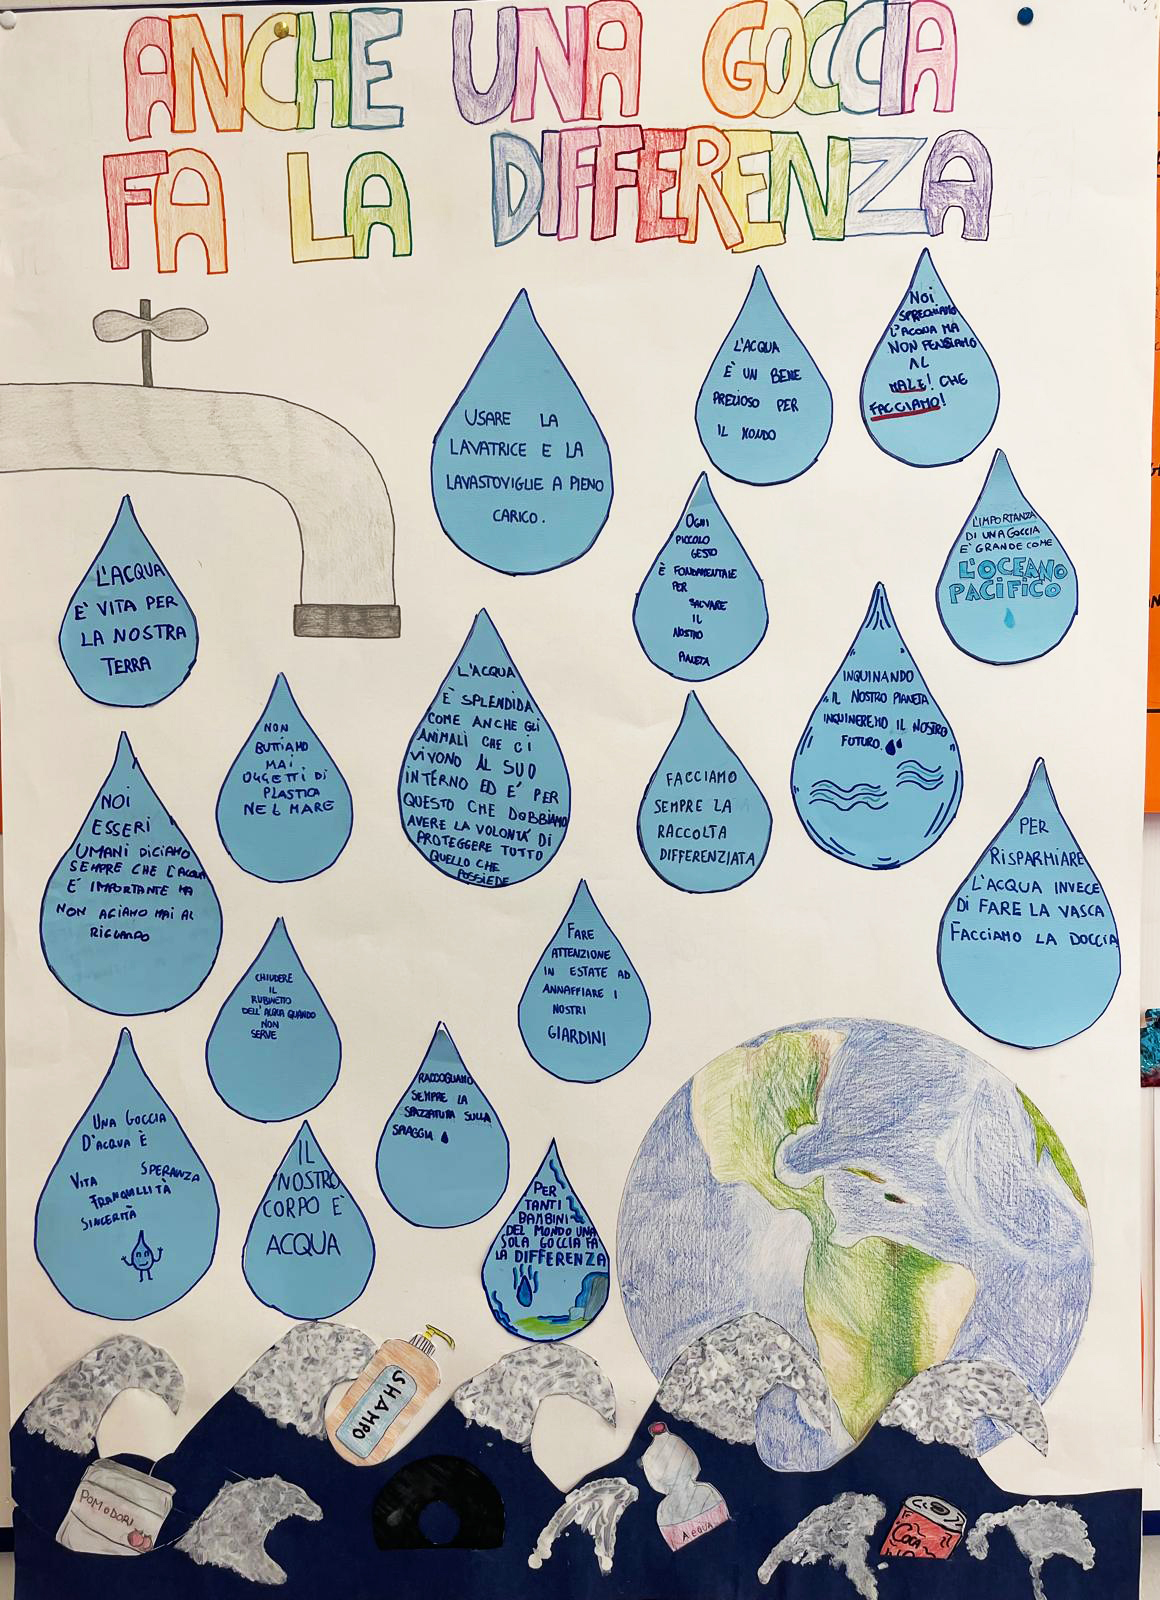 ANCHE UNA GOCCIA
FA LA DIFFERENZA
USARE LA
LAVATRICE E LA
LAVASTOVIGLIE A PIENO
CARICO.
L'ACQUA
E' UN BENE
PREZIOSO PER
IL MONDO
NOI
SPRECHIAMO
L'ACQUA MA
NON PENSIAMO
AL
MALE! CHE
FACCIAMO!
L'ACQUA
E' VITA PER
LA NOSTRA
TERRA
OGNI
PICCOLO
GESTO
È FONDAMENTALE
PER
SALVARE
IL
NOSTRO
PIANETA
L'IMPORTANZA
DI UNA GOCCIA
E' GRANDE COME
L'OCEANO
PACIFICO
NON
BUTTIAMO
MAI
OGGETTI DI
PLASTICA
NEL MARE
L'ACQUA
È SPLENDIDA
COME ANCHE GLI
ANIMALI CHE CI
VIVONO AL SUO
INTERNO ED E' PER
QUESTO CHE DOBBIAMO
AVERE LA VOLONTÀ DI
PROTEGGERE TUTTO
QUELLO CHE
POSSIEDE
FACCIAMO
SEMPRE LA
RACCOLTA
DIFFERENZIATA
INQUINANDO
IL NOSTRO PIANETA
INQUINEREMO IL NOSTRO
FUTURO.
NOI
ESSERI
UMANI DICIAMO
SEMPRE CHE L'ACQUA
E' IMPORTANTE MA
NON AGIAMO MAI AL
RIGUARDO
PER
RISPARMIARE
L'ACQUA INVECE
DI FARE LA VASCA
FACCIAMO LA DOCCIA
CHIUDERE
IL
RUBINETTO
DELL'ACQUA QUANDO
NON
SERVE
FARE
ATTENZIONE
IN ESTATE AD
ANNAFFIARE I
NOSTRI
GIARDINI
UNA GOCCIA
D'ACQUA È
VITA SPERANZA
TRANQUILLITÀ
SINCERITÀ
IL
NOSTRO
CORPO È
ACQUA
RACCOGLIAMO
SEMPRE LA
SPAZZATURA SULLA
SPIAGGIA
PER
TANTI
BAMBINI
DEL MONDO UNA
SOLA GOCCIA FA
LA DIFFERENZA
SHAMPO
POMODORI
ACQUA
COCA